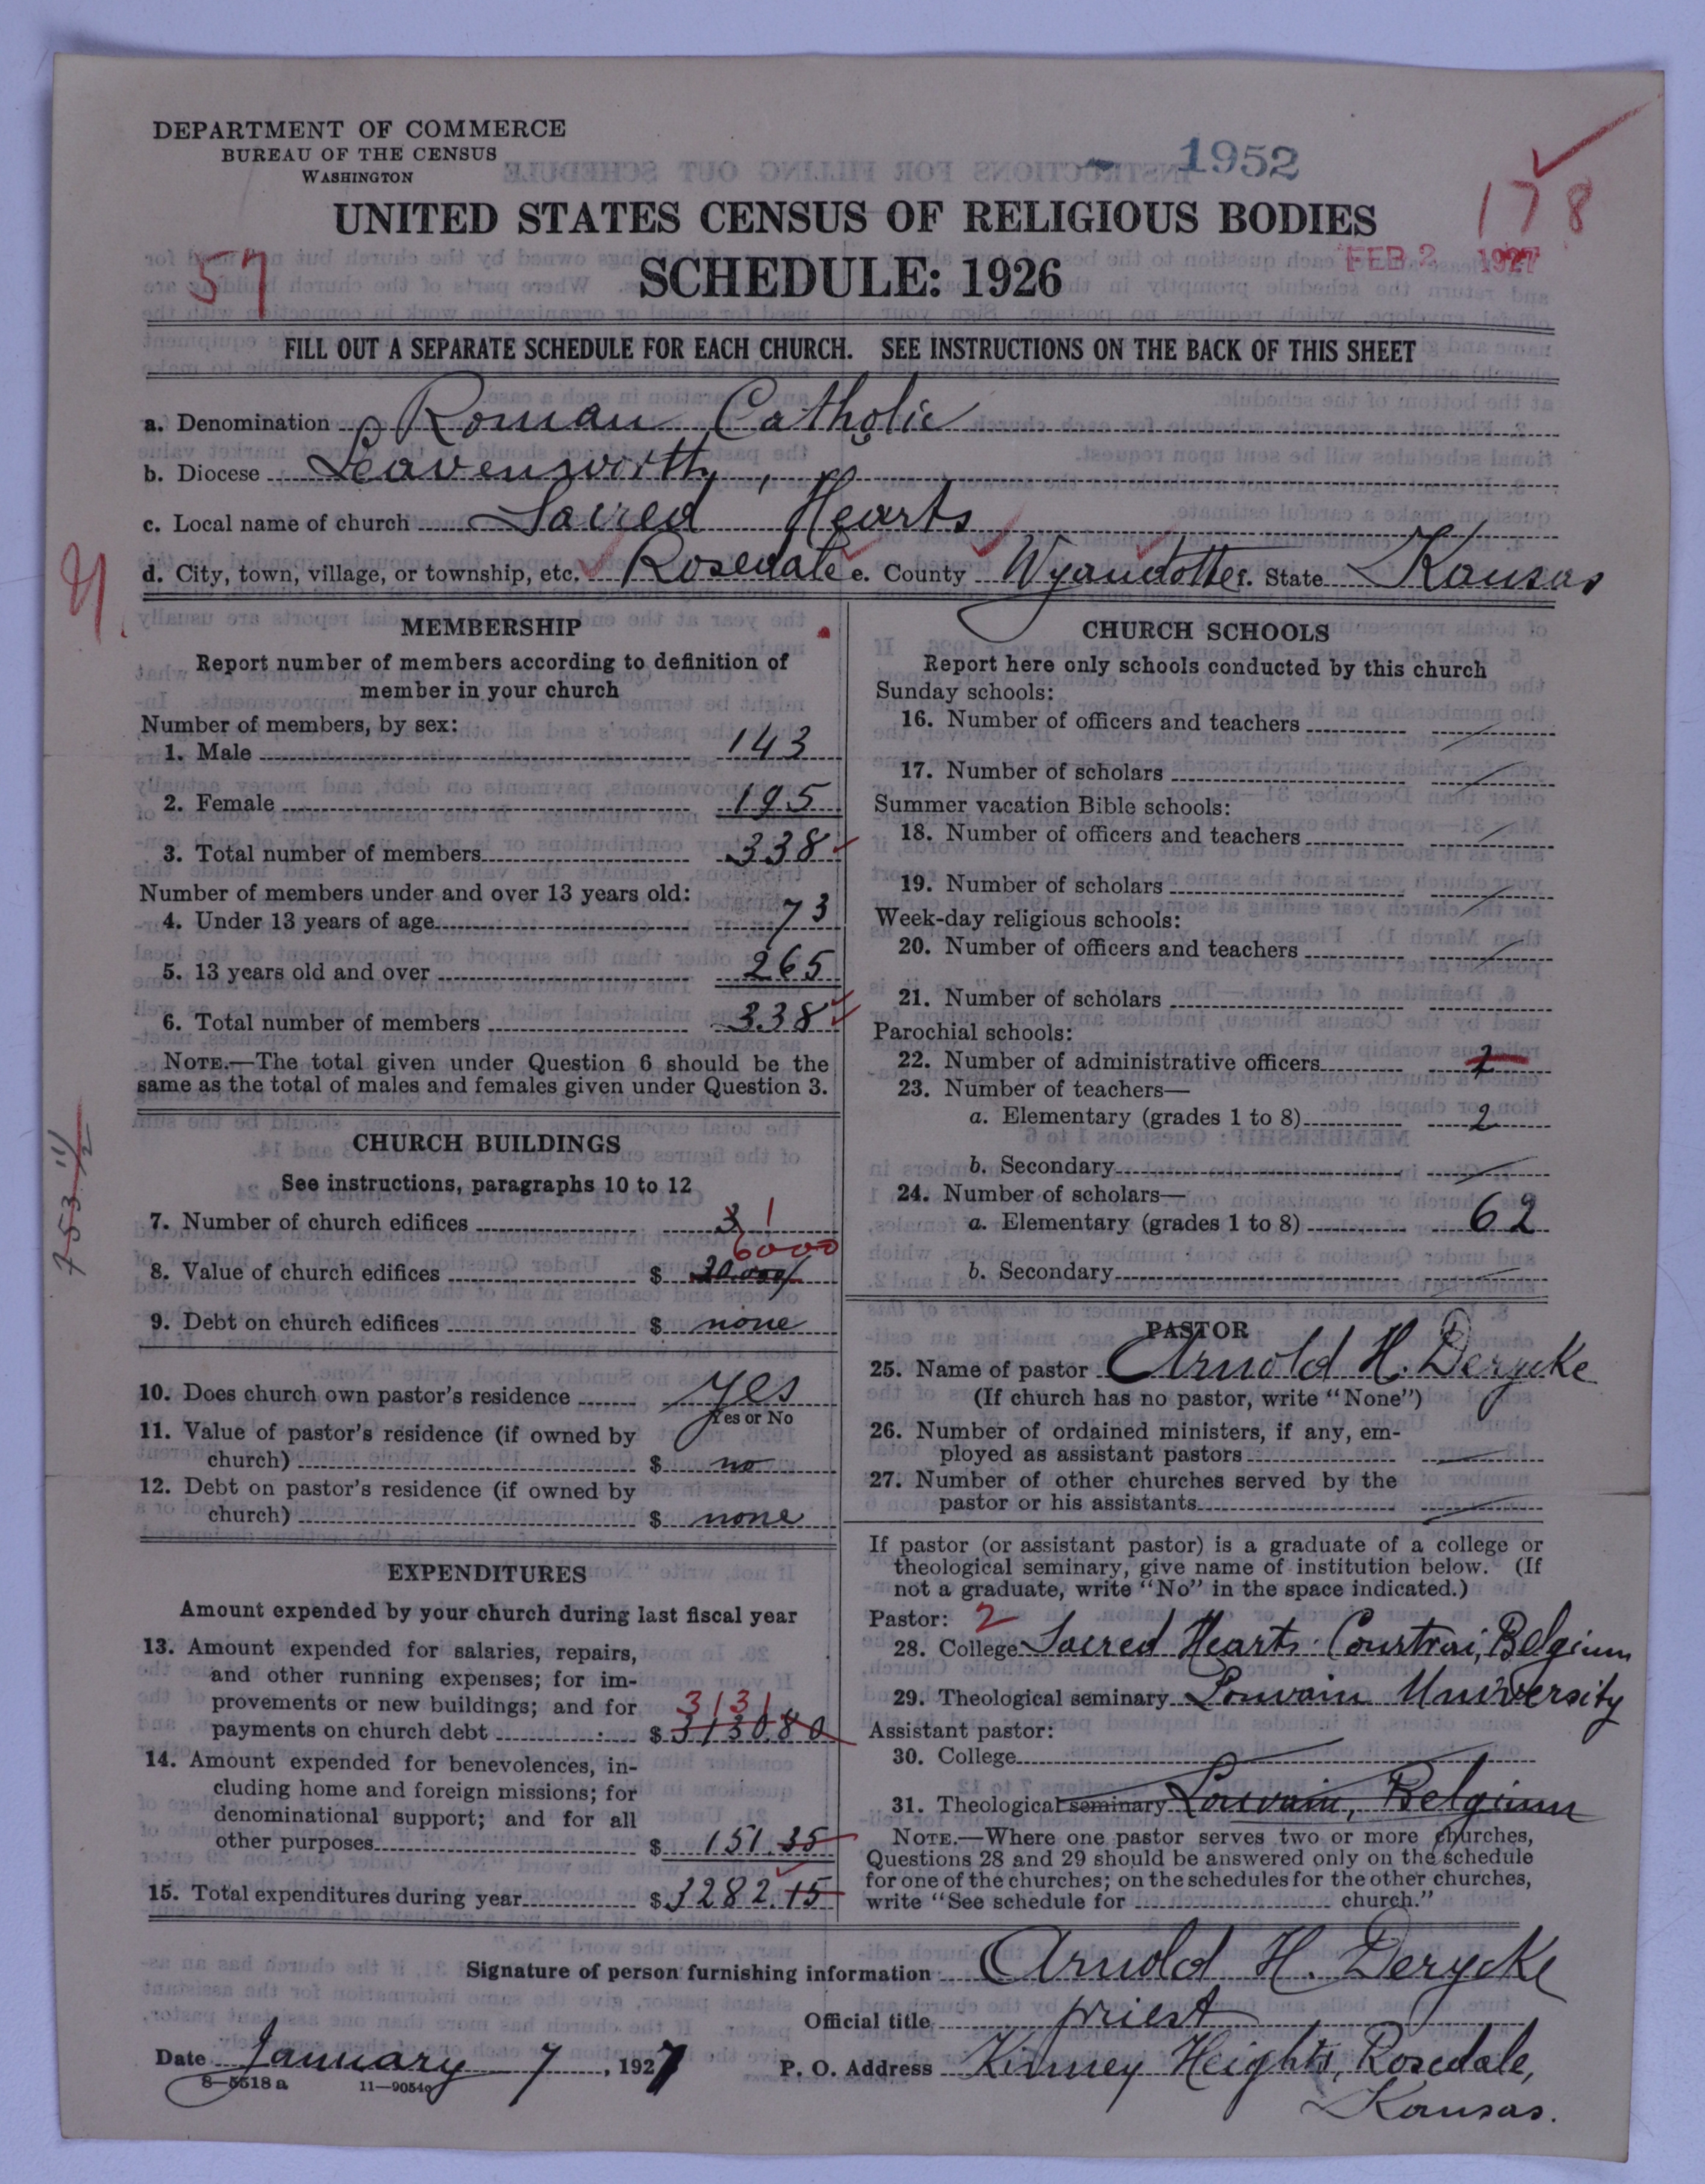 DEPARTMENT OF COMMERCE
BUREAU OF THE CENSUS
WASHINGTON
1952
178
UNITED STATES CENSUS OF RELIGIOUS BODIES
57
FEB 2 1927
SCHEDULE: 1926
FILL OUT A SEPARATE SCHEDULE FOR EACH CHURCH. SEE INSTRUCTIONS ON THE BACK OF THIS SHEET
a. Denomination Roman Catholic
b. Diocese Leavenworth,
c. Local name of church Sacred Hearts
d. City, town, village, or township, etc. Rosedale e. County Wyandotte f. State Kansas
MEMBERSHIP
Report number of members according to definition of
member in your church
Number of members, by sex:
1. Male 143
2. Female 195
3. Total number of members 338
Number of members under and over 13 years old:
4. Under 13 years of age 73
5. 13 years old and over 265
6. Total number of members 338
NOTE.—The total given under Question 6 should be the
same as the total of males and females given under Question 3.
CHURCH BUILDINGS
See instructions, paragraphs 10 to 12
7. Number of church edifices 1
6000
8. Value of church edifices $ 20.000
9. Debt on church edifices $ none
10. Does church own pastor's residence yes
Yes or No
11. Value of pastor's residence (if owned by
church) $ no
12. Debt on pastor's residence (if owned by
church) $ none
EXPENDITURES
Amount expended by your church during last fiscal year
13. Amount expended for salaries, repairs,
and other running expenses; for im-
provements or new buildings; and for 3131
payments on church debt $ 3130.80
14. Amount expended for benevolences, in-
cluding home and foreign missions; for
denominational support; and for all
other purposes $ 151.35
15. Total expenditures during year $ 3282.15
CHURCH SCHOOLS
Report here only schools conducted by this church
Sunday schools:
16. Number of officers and teachers
17. Number of scholars
Summer vacation Bible schools:
18. Number of officers and teachers
19. Number of scholars
Week-day religious schools:
20. Number of officers and teachers
21. Number of scholars
Parochial schools:
22. Number of administrative officers 2
23. Number of teachers—
a. Elementary (grades 1 to 8) 2
b. Secondary
24. Number of scholars—
a. Elementary (grades 1 to 8) 62
b. Secondary
PASTOR
25. Name of pastor Arnold H. Derycke
(If church has no pastor, write "None")
26. Number of ordained ministers, if any, em-
ployed as assistant pastors
27. Number of other churches served by the
pastor or his assistants
If pastor (or assistant pastor) is a graduate of a college or
theological seminary, give name of institution below. (If
not a graduate, write "No" in the space indicated.)
Pastor: 2
28. College Sacred Hearts Courtrai, Belgium
29. Theological seminary Louvain University
Assistant pastor:
30. College
31. Theological seminary Louvain, Belgium
NOTE.—Where one pastor serves two or more churches,
Questions 28 and 29 should be answered only on the schedule
for one of the churches; on the schedules for the other churches,
write "See schedule for church."
Signature of person furnishing information Arnold H. Derycke
Official title priest
Date January 7, 1927 P. O. Address Kinney Heights, Rosedale,
Kansas.
8—5518 a 11—9054